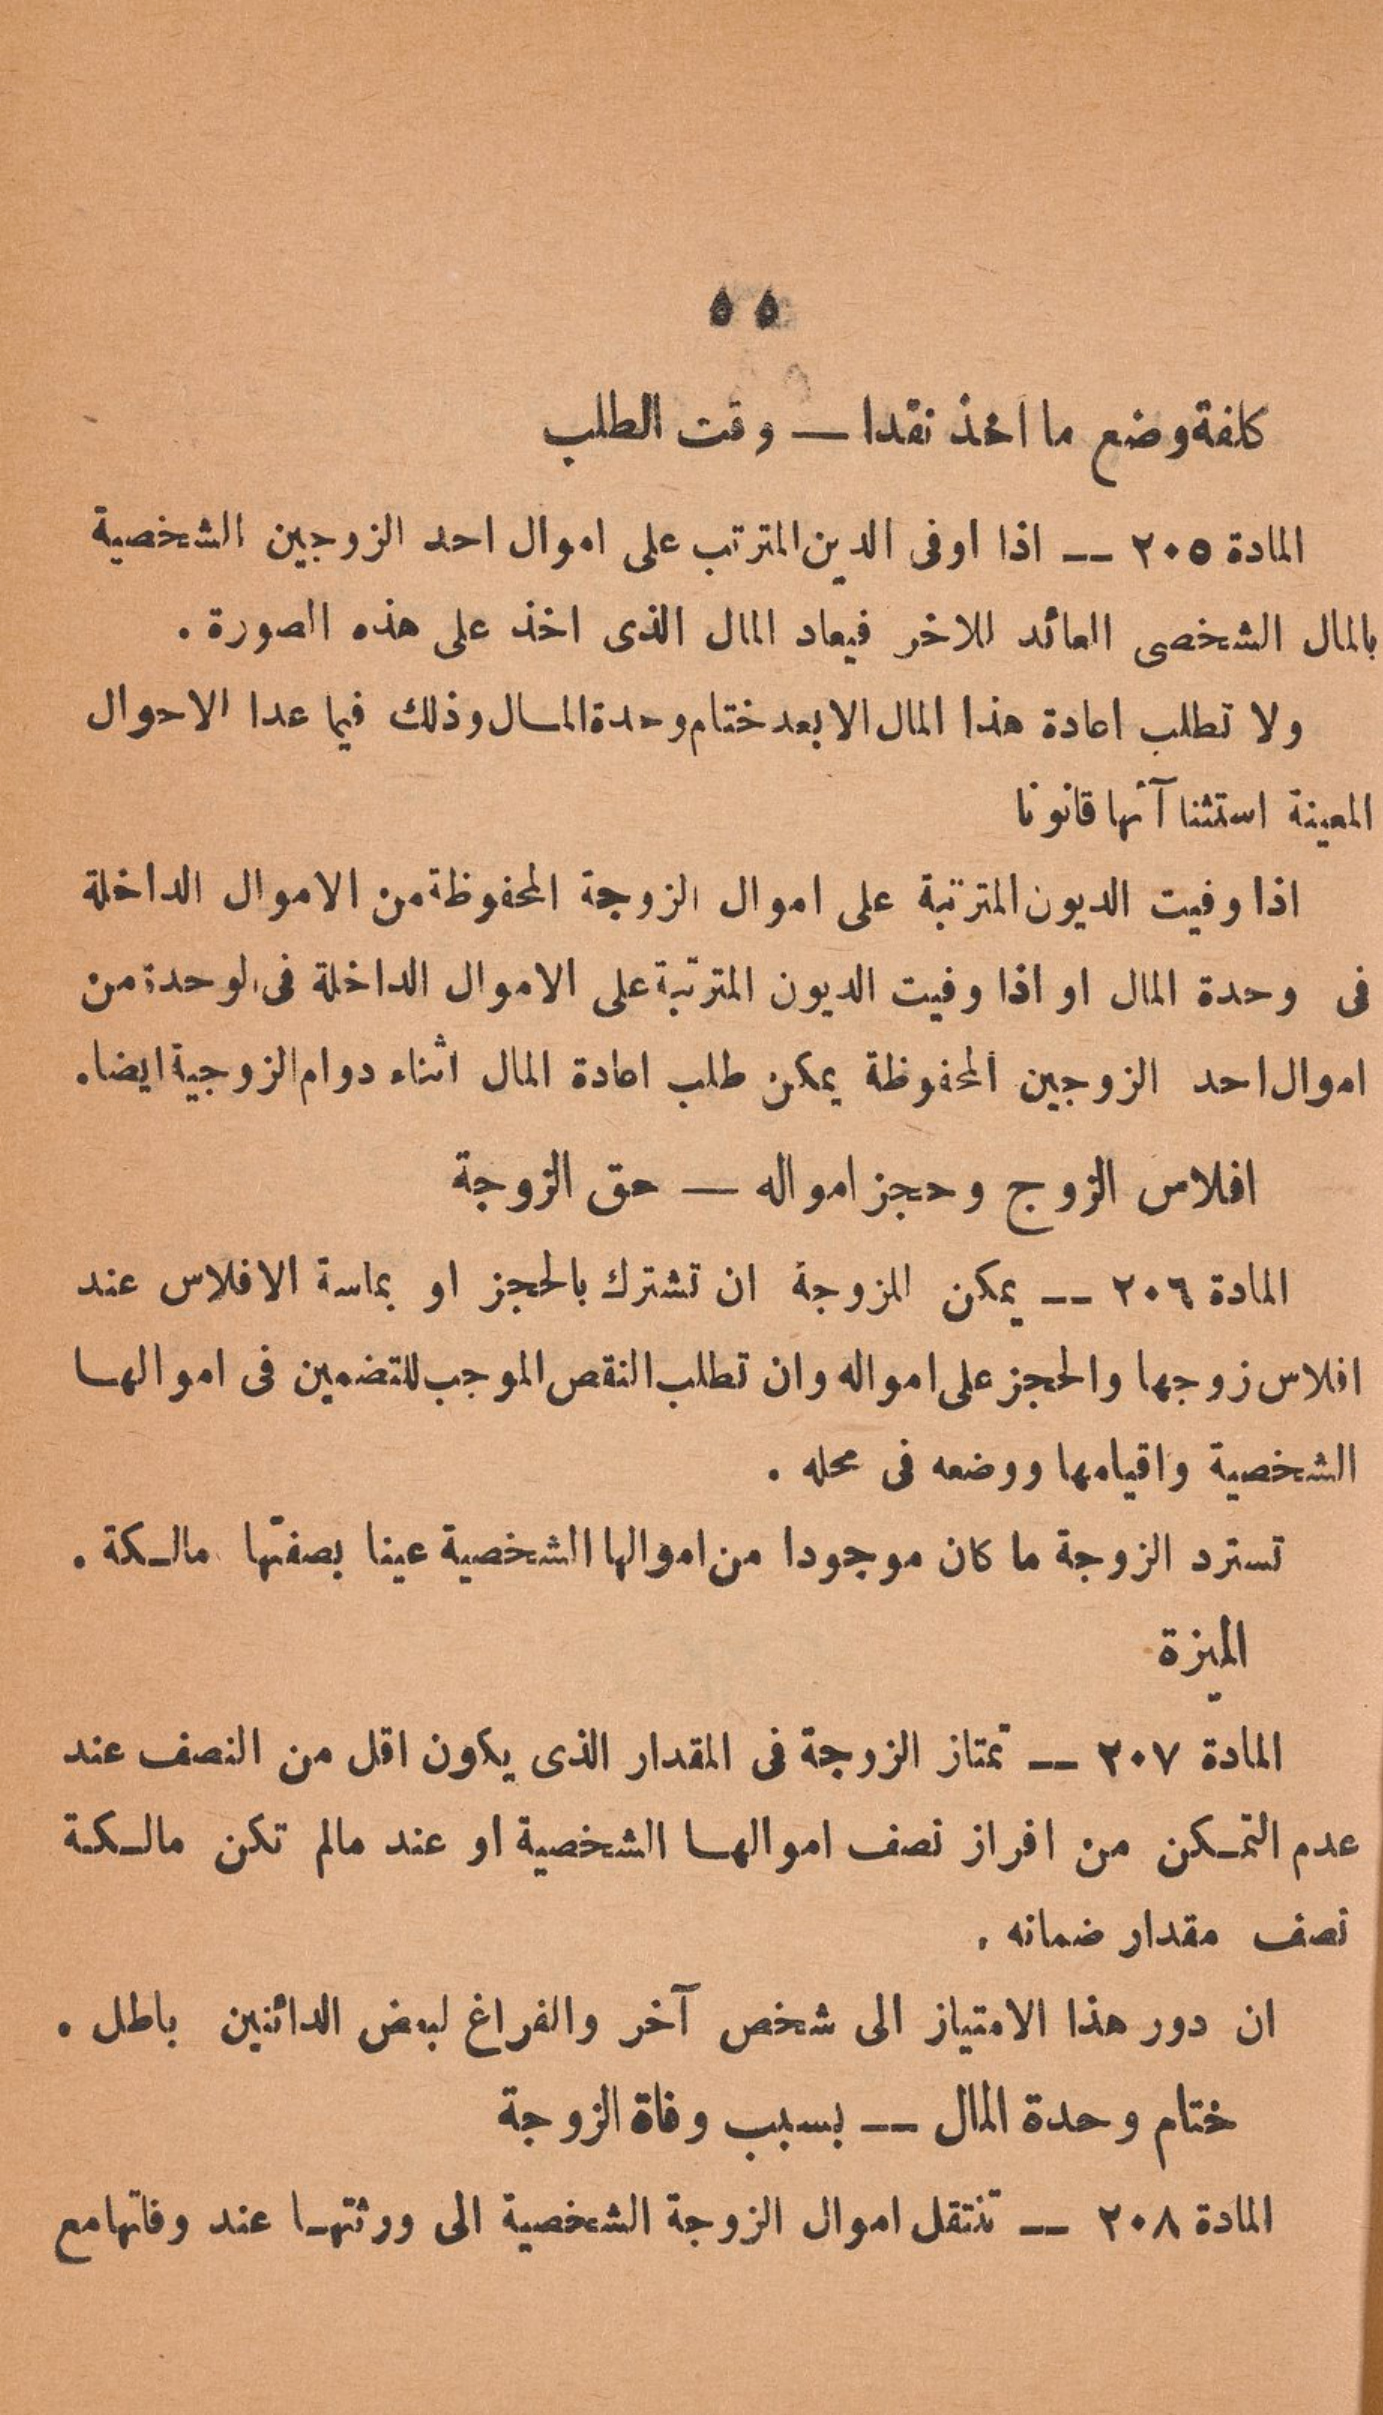 ٥٥
كلفة وضع ما اخذ نقدا — وقت الطلب
المادة ٢٠٥ — اذا اوفى الدين المترتب على اموال احد الزوجين الشخصية
بالمال الشخصى العائد للاخر فيعاد المال الذى اخذ على هذه الصورة .
ولا تطلب اعادة هذا المال الا بعد ختام وحدة المال وذلك فيما عدا الاحوال
المعينة استثنا آتها قانونا
اذا وفيت الديون المترتبة على اموال الزوجة المحفوظة من الاموال الداخلة
فى وحدة المال او اذا وفيت الديون المترتبة على الاموال الداخلة فى الوحدة من
اموال احد الزوجين المحفوظة يمكن طلب اعادة المال اثناء دوام الزوجية ايضا.
افلاس الزوج وحجز امواله — حق الزوجة
المادة ٢٠٦ — يمكن الزوجة ان تشترك بالحجز او بماسة الافلاس عند
افلاس زوجها والحجز على امواله وان تطلب النقص الموجب للتضمين فى اموالها
الشخصية واقيامها ووضعه فى محله .
تسترد الزوجة ما كان موجودا من اموالها الشخصية عينا بصفتها مالكة .
الميزة
المادة ٢٠٧ — تمتاز الزوجة فى المقدار الذى يكون اقل من النصف عند
عدم التمكن من افراز نصف اموالها الشخصية او عند مالم تكن مالكة
نصف مقدار ضمانه .
ان دور هذا الامتياز الى شخص آخر والفراغ لبعض الدائنين باطل .
ختام وحدة المال — بسبب وفاة الزوجة
المادة ٢٠٨ — تنتقل اموال الزوجة الشخصية الى ورثتها عند وفاتها مع